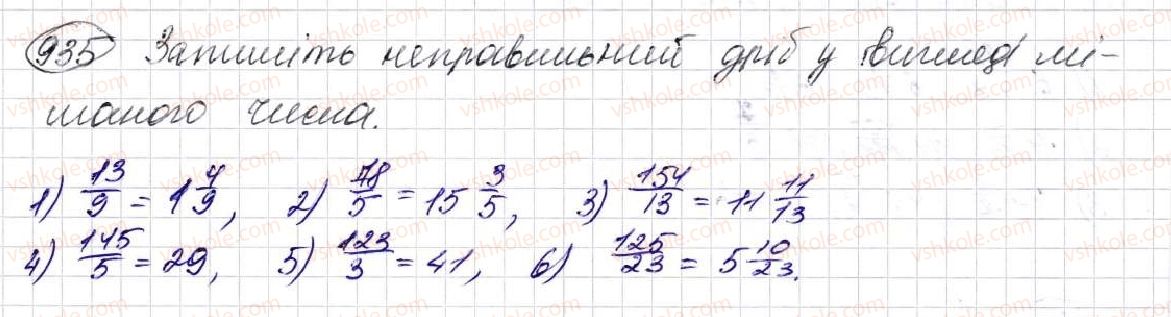 935 Запишіть неправильний дріб у вигляді мі-
шаного числа.
1) 13/9 = 1 4/9, 2) 78/5 = 15 3/5, 3) 154/13 = 11 11/13
4) 145/5 = 29, 5) 123/3 = 41, 6) 125/23 = 5 10/23.